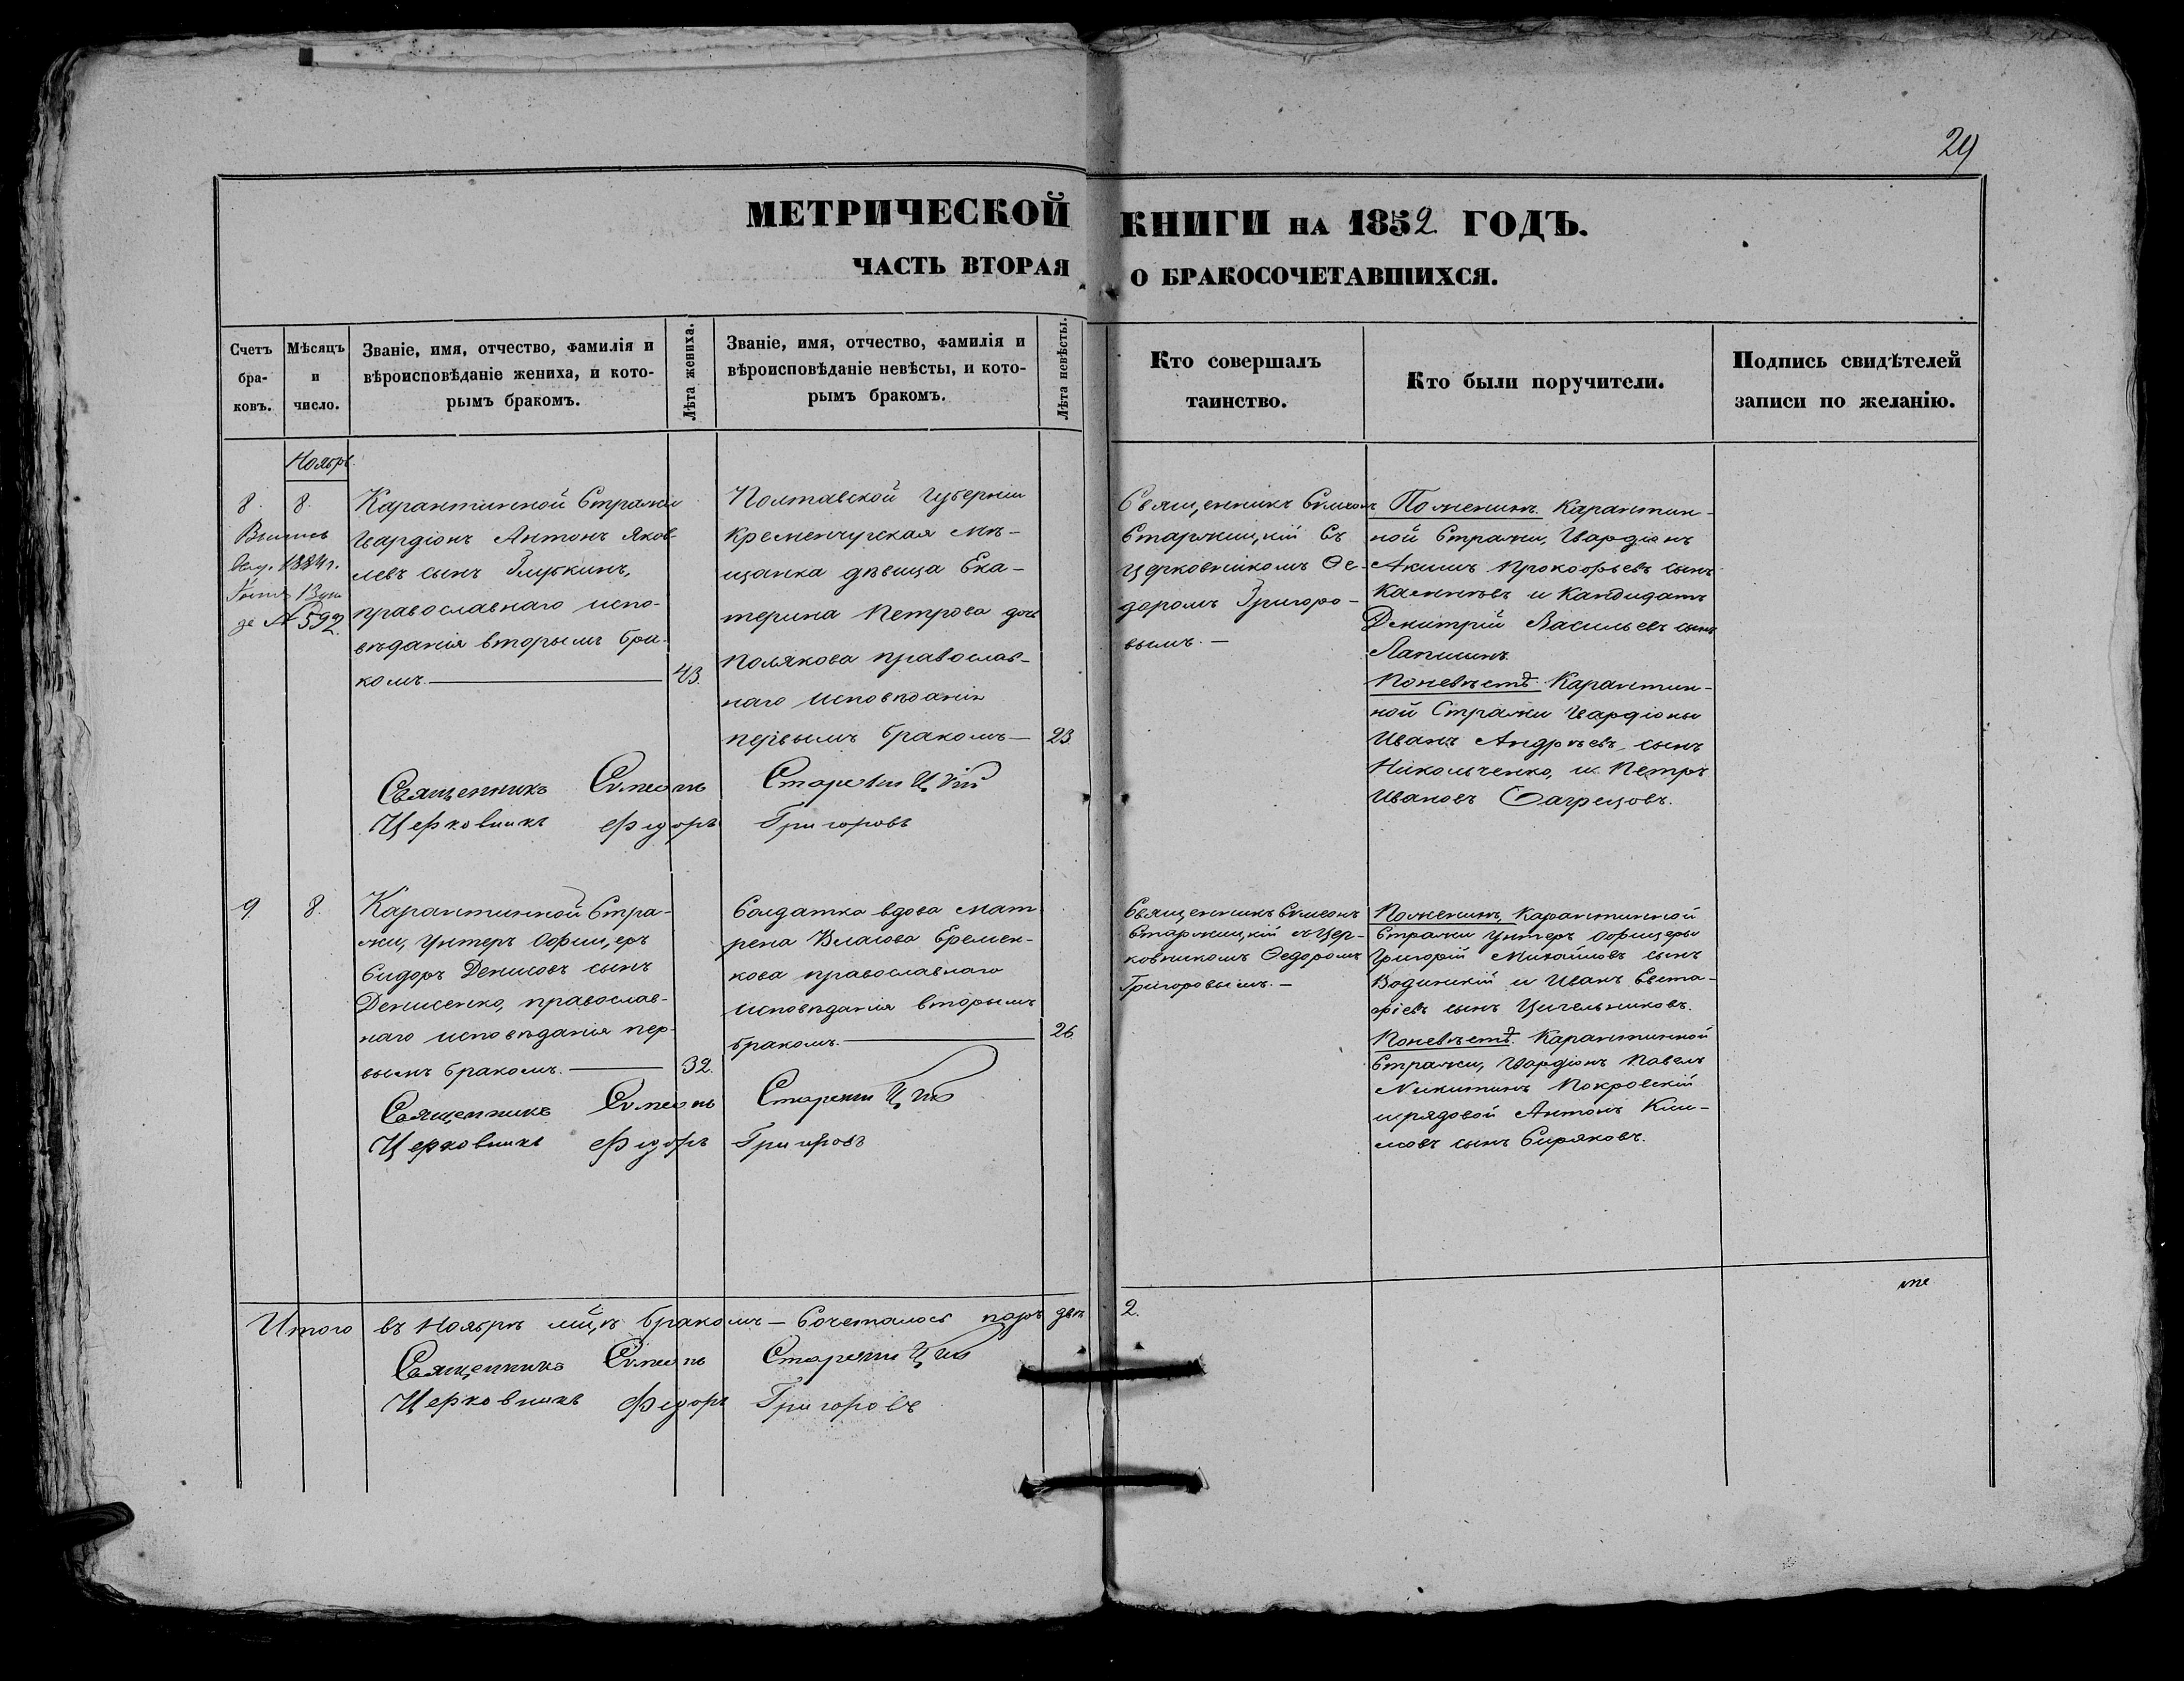 29
МЕТРИЧЕСКОЙ КНИГИ НА 1852 ГОДЪ.
ЧАСТЬ ВТОРАЯ О БРАКОСОЧЕТАВШИХСЯ.
Счетъ бра-
ковъ.
Мѣсяцъ
и
число.
Званіе, имя, отчество, фамилія и
вѣроисповѣданіе жениха, и кото-
рымъ бракомъ.
Лѣта жениха.
Званіе, имя, отчество, фамилія и
вѣроисповѣданіе невѣсты, и кото-
рымъ бракомъ.
Лѣта невѣсты.
Кто совершалъ
таинство.
Кто были поручители.
Подпись свидѣтелей
записи по желанію.
Ноябрь
8.
Выпись
выд. 1884 г.
за № 592.
8.
Карантинной Стражи
Гвардіонъ Антонъ Яков-
левъ сынъ
православнаго испо-
вѣданія вторымъ бра-
комъ.
43.
Полтавской Губерніи
Кременчугская мѣ-
щанка дѣвица Ека-
терина Петрова дочь
Полякова православ-
наго исповѣданія
первымъ бракомъ
23.
Священникъ Симеонъ
Старжицкій съ
церковникомъ Ѳе-
доромъ Григоро-
вымъ.
По женихѣ Карантин-
ной Стражи, Гвардіонъ
Акимъ Прокофьевъ сынъ
и Кандидатъ
Дмитрій Васильевъ сынъ
Лапшинъ.
По невѣстѣ. Карантин-
ной Стражи Гвардіоны
Иванъ Андрѣевъ сынъ
Никольченко, и Петръ
Ивановъ Багрецовъ.
Священникъ Симеонъ Старжицкій
Церковникъ Федоръ Григоровъ
9.
8.
Карантинной Стра-
жи, Унтеръ Офицеръ
Сидоръ Денисовъ сынъ
Денисенко, православ-
наго исповѣданія пер-
вымъ бракомъ.
32.
Солдатка вдова Мат-
рена Власова Еремен-
кова православнаго
исповѣданія вторымъ
бракомъ.
26
Священникъ Симеонъ
Старжицкій съ Цер-
ковникомъ Ѳедоромъ
Григоровымъ.
По женихѣ, Карантинной
Стражи Унтеръ Офицеры
Григорій Михайловъ сынъ
Водинскій и Иванъ Евста-
фіевъ сынъ Цигельниковъ.
По невѣстѣ. Карантинной
Стражи, Гвардіонъ Павелъ
Никитинъ Покровскій
и рядовой Антонъ Кли-
мовъ сынъ Сиряковъ.
Священникъ Симеонъ Старжицкій
Церковникъ Федоръ Григоровъ
Итого въ Ноябрѣ мцѣ бракомъ Сочеталось паръ двѣ 2.
Священникъ Симеонъ Старжицкій
Церковникъ Федоръ Григоровъ